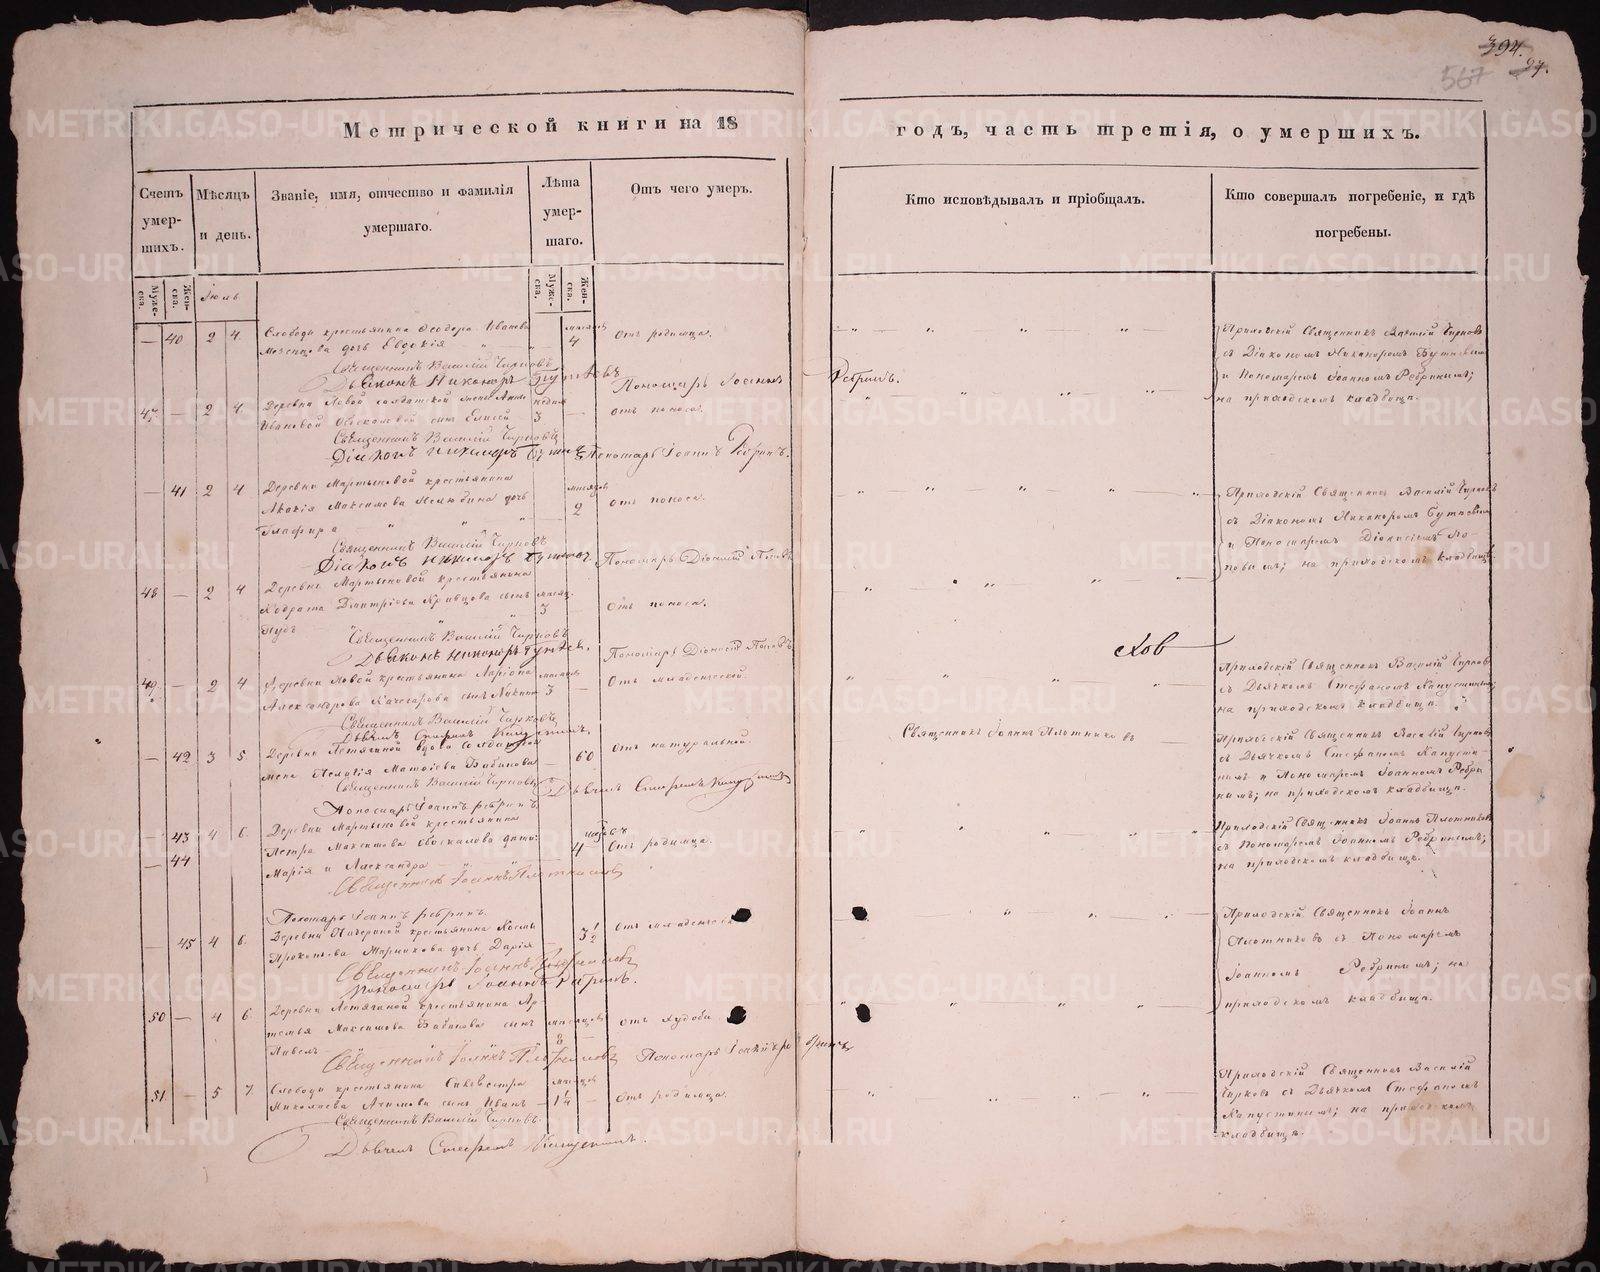 394.
567 27.
Метрической книги на 18 годъ, часть третія, о умершихъ.
Счетъ умер-
шихъ.
Мѣсяцъ
и день.
Званіе, имя, отчество и фамилія
умершаго.
Лѣта
умер-
шаго.
Отъ чего умеръ.
Кто исповѣдывалъ и пріобщалъ.
Кто совершалъ погребеніе, и гдѣ
погребены.
Муже-
ска.
Жен-
ска.
Іюль
Муже-
ска.
Жен-
ска.
— 40 2 4 Слободы крестьянина Ѳеодора Иванова
дочь Евдокія
мѣсяцъ
4
Отъ родимца.
Приходскій Священникъ Василій Чирковъ
съ Діакономъ Никаноромъ
и Пономаремъ Іоанномъ Ребринымъ;
на приходскомъ кладбищѣ.
Священникъ Василій Чирковъ
Діаконъ Никаноръ
Пономарь Іоаннъ Ребринъ.
47 — 2 4 Деревни Новой солдатской жены
Ивановой сынъ Елисей
недѣль
3 —
отъ поноса.
Священникъ Василій Чирковъ
Діаконъ Никаноръ
Пономарь Іоаннъ Ребринъ.
— 41 2 4 Деревни Мартыновой крестьянина
Максимова дочь
Глафира
мѣсяцъ
2
отъ поноса.
Приходскій Священникъ Василій Чирковъ
съ Діакономъ Никаноромъ
и Пономаремъ Діонисіемъ По-
повымъ; на приходскомъ кладбищѣ.
Священникъ Василій Чирковъ
Діаконъ Никаноръ
Пономарь Діонисій Поповъ
48 — 2 4 Деревни Мартыновой крестьянина
Кодрата Дмитріева Кривцова сынъ
мѣсяц.
3 —
Отъ поноса.
Священникъ Василій Чирковъ
Діаконъ Никаноръ
Пономарь Діонисій Поповъ
49 — 2 4 Деревни Новой крестьянина Ларіона
Александрова Качегарова сынъ
мѣсяцъ
3 —
Отъ младенческой.
Приходскій Священникъ Василій Чирковъ
съ Дьячкомъ Стефаномъ Капустинымъ;
на приходскомъ кладбищѣ.
Священникъ Василій Чирковъ
Дьячекъ Стефанъ Капустинъ.
— 42 3 5 Деревни Летягиной вдова солдатская
жена Пелагія Матвіева Бабинова
— 60
Отъ натуральной.
Священникъ Іоаннъ Плотниковъ
Приходскій Священникъ Василій Чирковъ
съ Дьячкомъ Стефаномъ Капусти-
нымъ и Пономаремъ Іоанномъ Ребри-
нымъ; на приходскомъ кладбищѣ.
Священникъ Василій Чирковъ
Дьячекъ Стефанъ Капустинъ
Пономарь Іоаннъ Ребринъ.
43 4 6 Деревни Мартыновой крестьянина
Петра Максимова Обоскалова дѣти:
— 44 Марія и Александра
4
Отъ родимца.
Приходскій Священникъ Іоаннъ Плотниковъ
съ Пономаремъ Іоанномъ Ребринымъ;
на приходскомъ кладбищѣ.
Священникъ Іоаннъ Плотниковъ
Пономарь Іоаннъ Ребринъ.
— 45 4 6 Деревни крестьянина Космы
Прокопьева дочь Дарія
— 3 1/2
Отъ младенческой
Приходскій Священникъ Іоаннъ
Плотниковъ съ Пономаремъ
Іоанномъ Ребринымъ; на
приходскомъ кладбищѣ.
Священникъ Іоаннъ Плотниковъ
Пономарь Іоаннъ Ребринъ.
50 — 4 6 Деревни Летягиной крестьянина Ар-
темья Максимова Бабинова сынъ
Павелъ
мѣсяцовъ
8 —
отъ худобы
Священникъ Іоаннъ Плотниковъ
Пономарь Іоаннъ Ребринъ
51 — 5 7 Слободы крестьянина Сильвестра
Николаева сынъ Иванъ
мѣсяцъ
— 1 1/4 —
отъ родимца.
Приходскій Священникъ Василій
Чирковъ съ Дьячкомъ Стефаномъ
Капустинымъ; на приходскомъ
кладбищѣ.
Священникъ Василій Чирковъ.
Дьячекъ Стефанъ Капустинъ.
METRIKI.GASO-URAL.RU